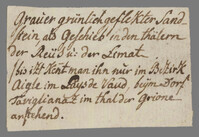 Grauer grünlich gefleckter Sand
stein als Geschieb in den thälern
der Reüs u: der Lemat.
bis izt kent man ihn nur im Bezirk
Aigle im Pays de Vaud, beym Dorf
Taviglianaz im thal der Grione
anstehend.